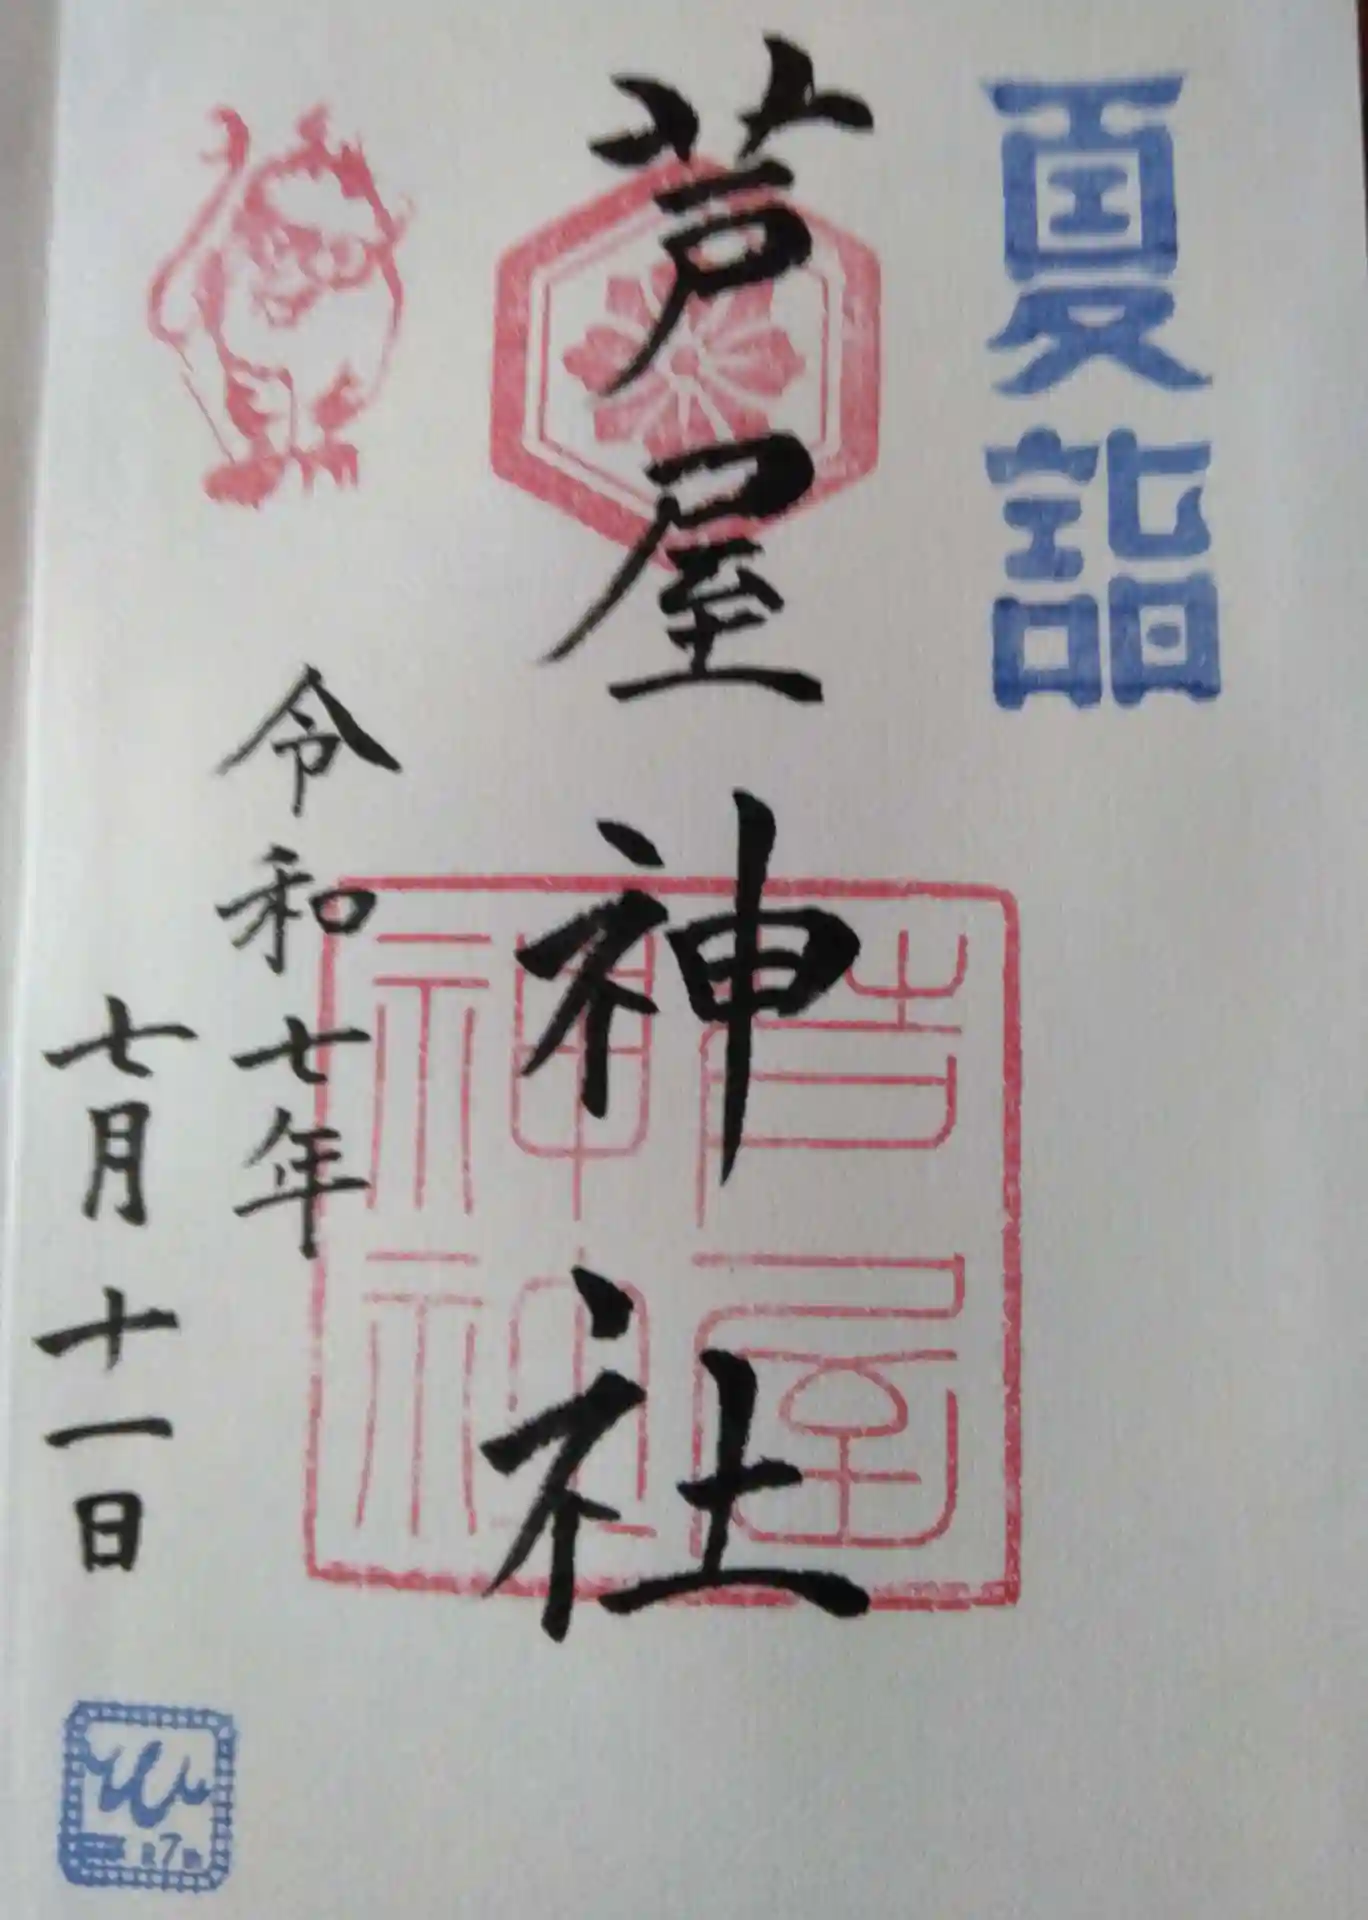 夏詣
芦屋神社
芦屋
神社
令和七年
七月十一日
7